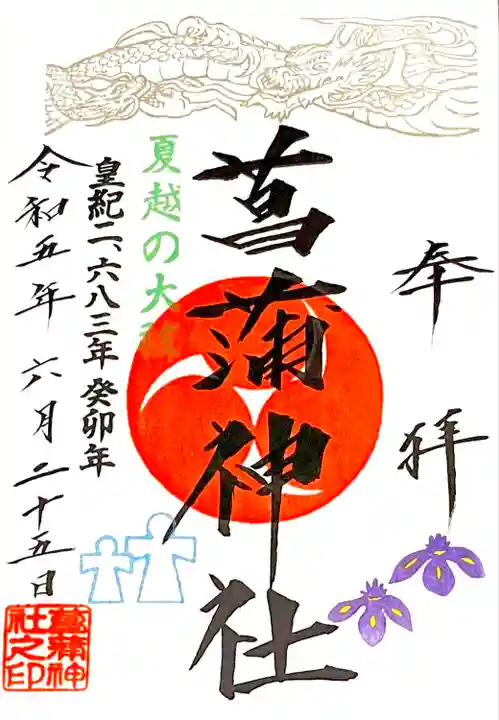 奉拝
菖蒲神社
夏越の大祓
皇紀二、六八三年 癸卯年
令和五年 六月二十五日
菖蒲神
社之印